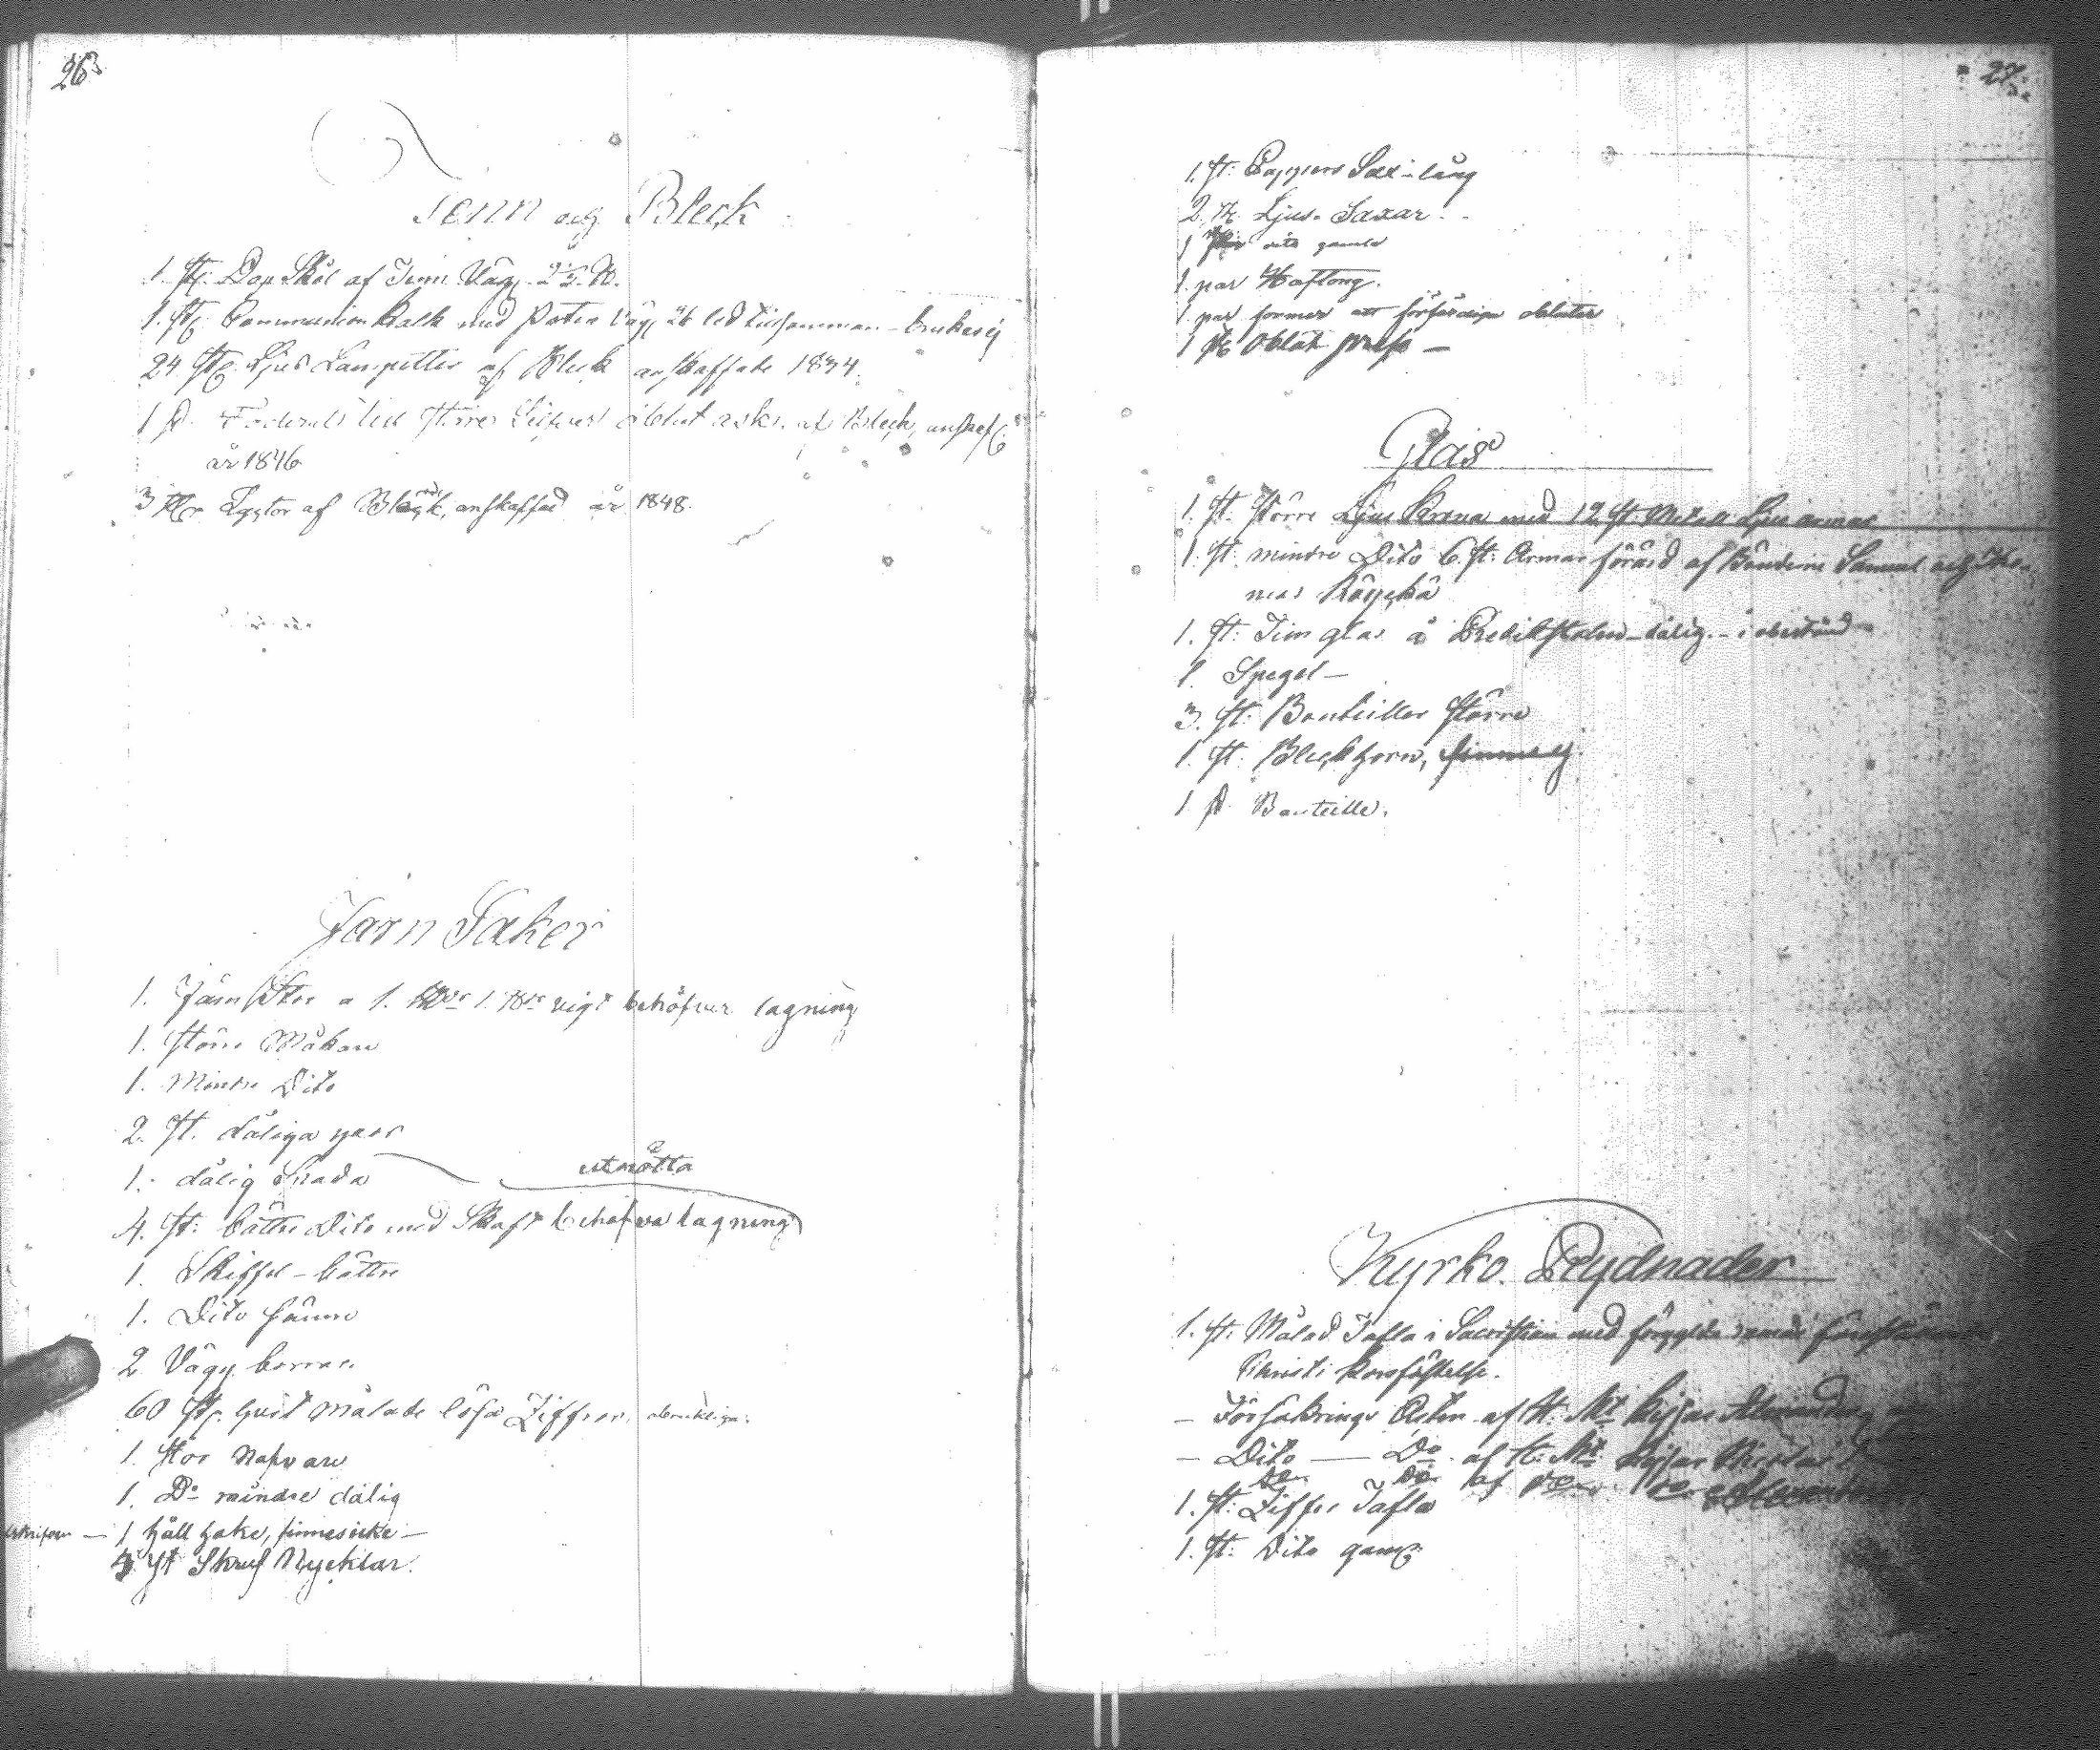 26
Tenn och Bleck
1. st. Dop Skål af Tenn Väg. 2½ ℔.
1. st. Communion Kalk med Paten väg. 26 lod tillsamman – brukas ej
24 st. Ljus Lampetter af Bleck anskaffade 1834.
1 st. Foderal till större Silfver oblat ask. af Bleck, anskaf.
år 1846
3 st. Lyktor af Bleck, anskaffad år 1848.
Järn Saker
1. Järn Stör a 1. vigt behöfver lagning
1. större Måkan
1. Mindre Dito
2. st. dåliga yxor
1. dålig Spada
utnötta
4. st: bättre Dito med Skaft behöfva lagning
1. Skiffel – bättre
1. Dito sämre
2 Vägg borrar
60 st. hvit målade lösa Ziffror, obrukliga.
1. stor Nafvare
1. D:o mindre dålig
– 1 häll hake, finnes icke –
4 st Skruf Nycklar.
27.
1. st: Pappers Sax – lång
2. st. Ljus. Saxar. –
1 dito gamla
1. par Hoftong.
1. par formar att förfärdiga oblater
1 st Oblat press –
Glas
1. st. större Ljus Krona med 12 st: Metall Ljus armar
1. st. mindre Dito 6. st: Armar förärd af Bönderne Samuel och Tho-
mas Käyskä
1. st: Tim glas å Predikstolen – dålig. – i obestånd
1. Spegel –
3. st: Bouteiller större
1. st: Bleckhorn, finnes ej.
1 st Bouteille.
Kyrko. Prydnader
1. st: Målad Tafla i Sacristian med förgylda ramar föreställande
Christi Korsfästelse.
– Försäkrings Acten af H. M:t Kejsar Alexander
– Dito — D:o af H: M:t Kejsar Nicolai
D:o D:o af D:o D:o Alexander
1. st: Ziffer Tafla
1. st: Dito gaml.